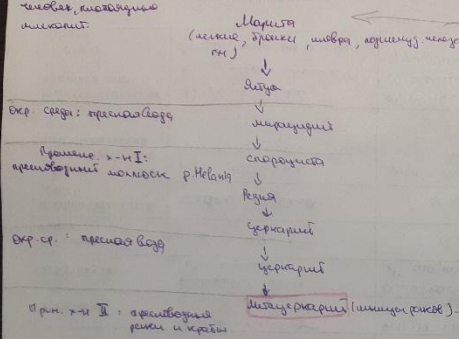 человек, плотоядные
млекопит.
Марита
(легкие, бронхи, плевра, поджелуд. железа
ГМ)
Яйцо
окр. среда: пресная вода
мирацидий
Промеж. х-н I:
спороциста
пресноводный моллюск р. Melania
Редия
церкарий
окр. ср.: пресная вода
церкарий
метацеркарий (мышцы раков)
х-н II: пресноводные
раки и крабы